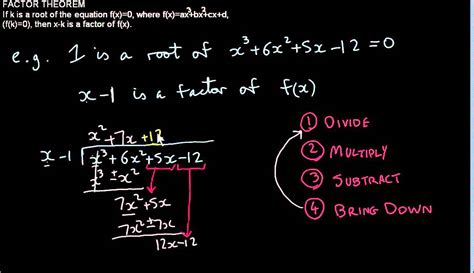 FACTOR THEOREM
If k is a root of the equation f(x)=0, where f(x)=ax³+bx²+cx+d,
(f(k)=0), then x-k is a factor of f(x).
e.g. 1 is a root of x³+6x²+5x-12 = 0
x-1 is a factor of f(x)
x² + 7x + 12
x - 1 | x³ + 6x² + 5x - 12
x³ ± x²
7x² + 5x
7x² ± 7x
12x - 12
① DIVIDE
② MULTIPLY
③ SUBTRACT
④ BRING DOWN